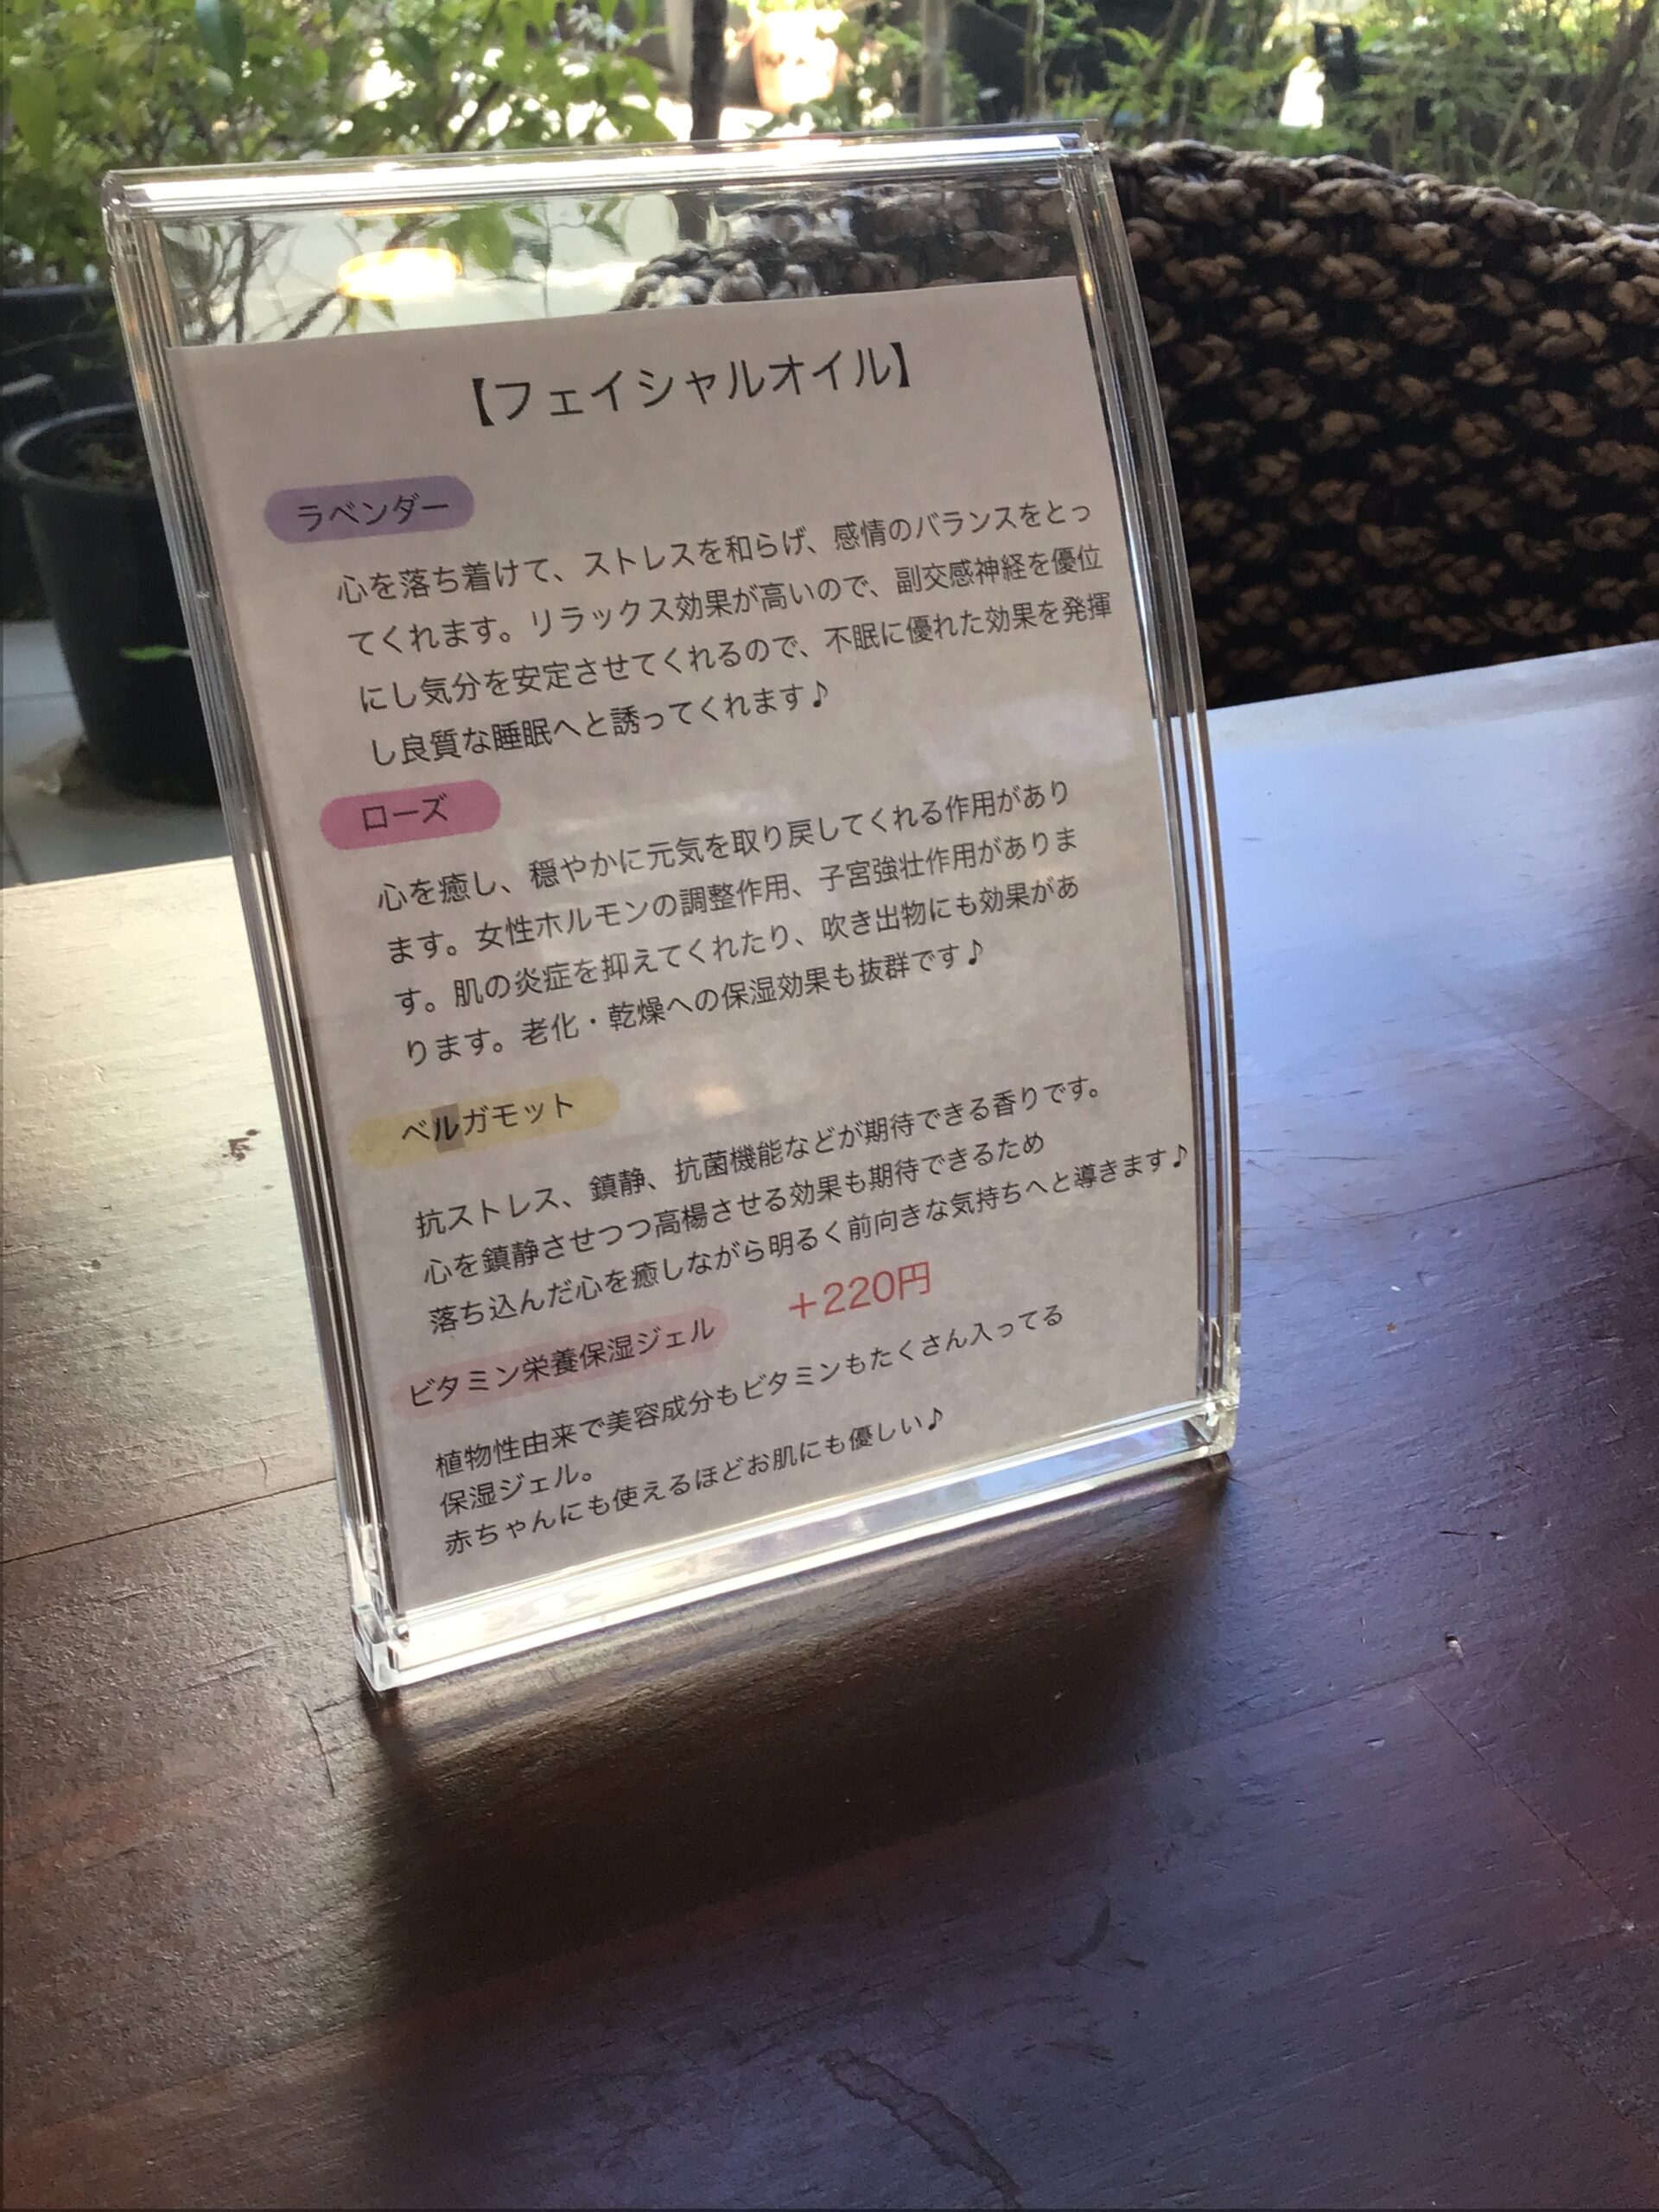 【フェイシャルオイル】
ラベンダー
心を落ち着けて、ストレスを和らげ、感情のバランスをとっ
てくれます。リラックス効果が高いので、副交感神経を優位
にし気分を安定させてくれるので、不眠に優れた効果を発揮
し良質な睡眠へと誘ってくれます♪
ローズ
心を癒し、穏やかに元気を取り戻してくれる作用があり
ます。女性ホルモンの調整作用、子宮強壮作用がありま
す。肌の炎症を抑えてくれたり、吹き出物にも効果があ
ります。老化・乾燥への保湿効果も抜群です♪
ベルガモット
抗ストレス、鎮静、抗菌機能などが期待できる香りです。
心を鎮静させつつ高楊させる効果も期待できるため
落ち込んだ心を癒しながら明るく前向きな気持ちへと導きます♪
ビタミン栄養保湿ジェル +220円
植物性由来で美容成分もビタミンもたくさん入ってる
保湿ジェル。
赤ちゃんにも使えるほどお肌にも優しい♪